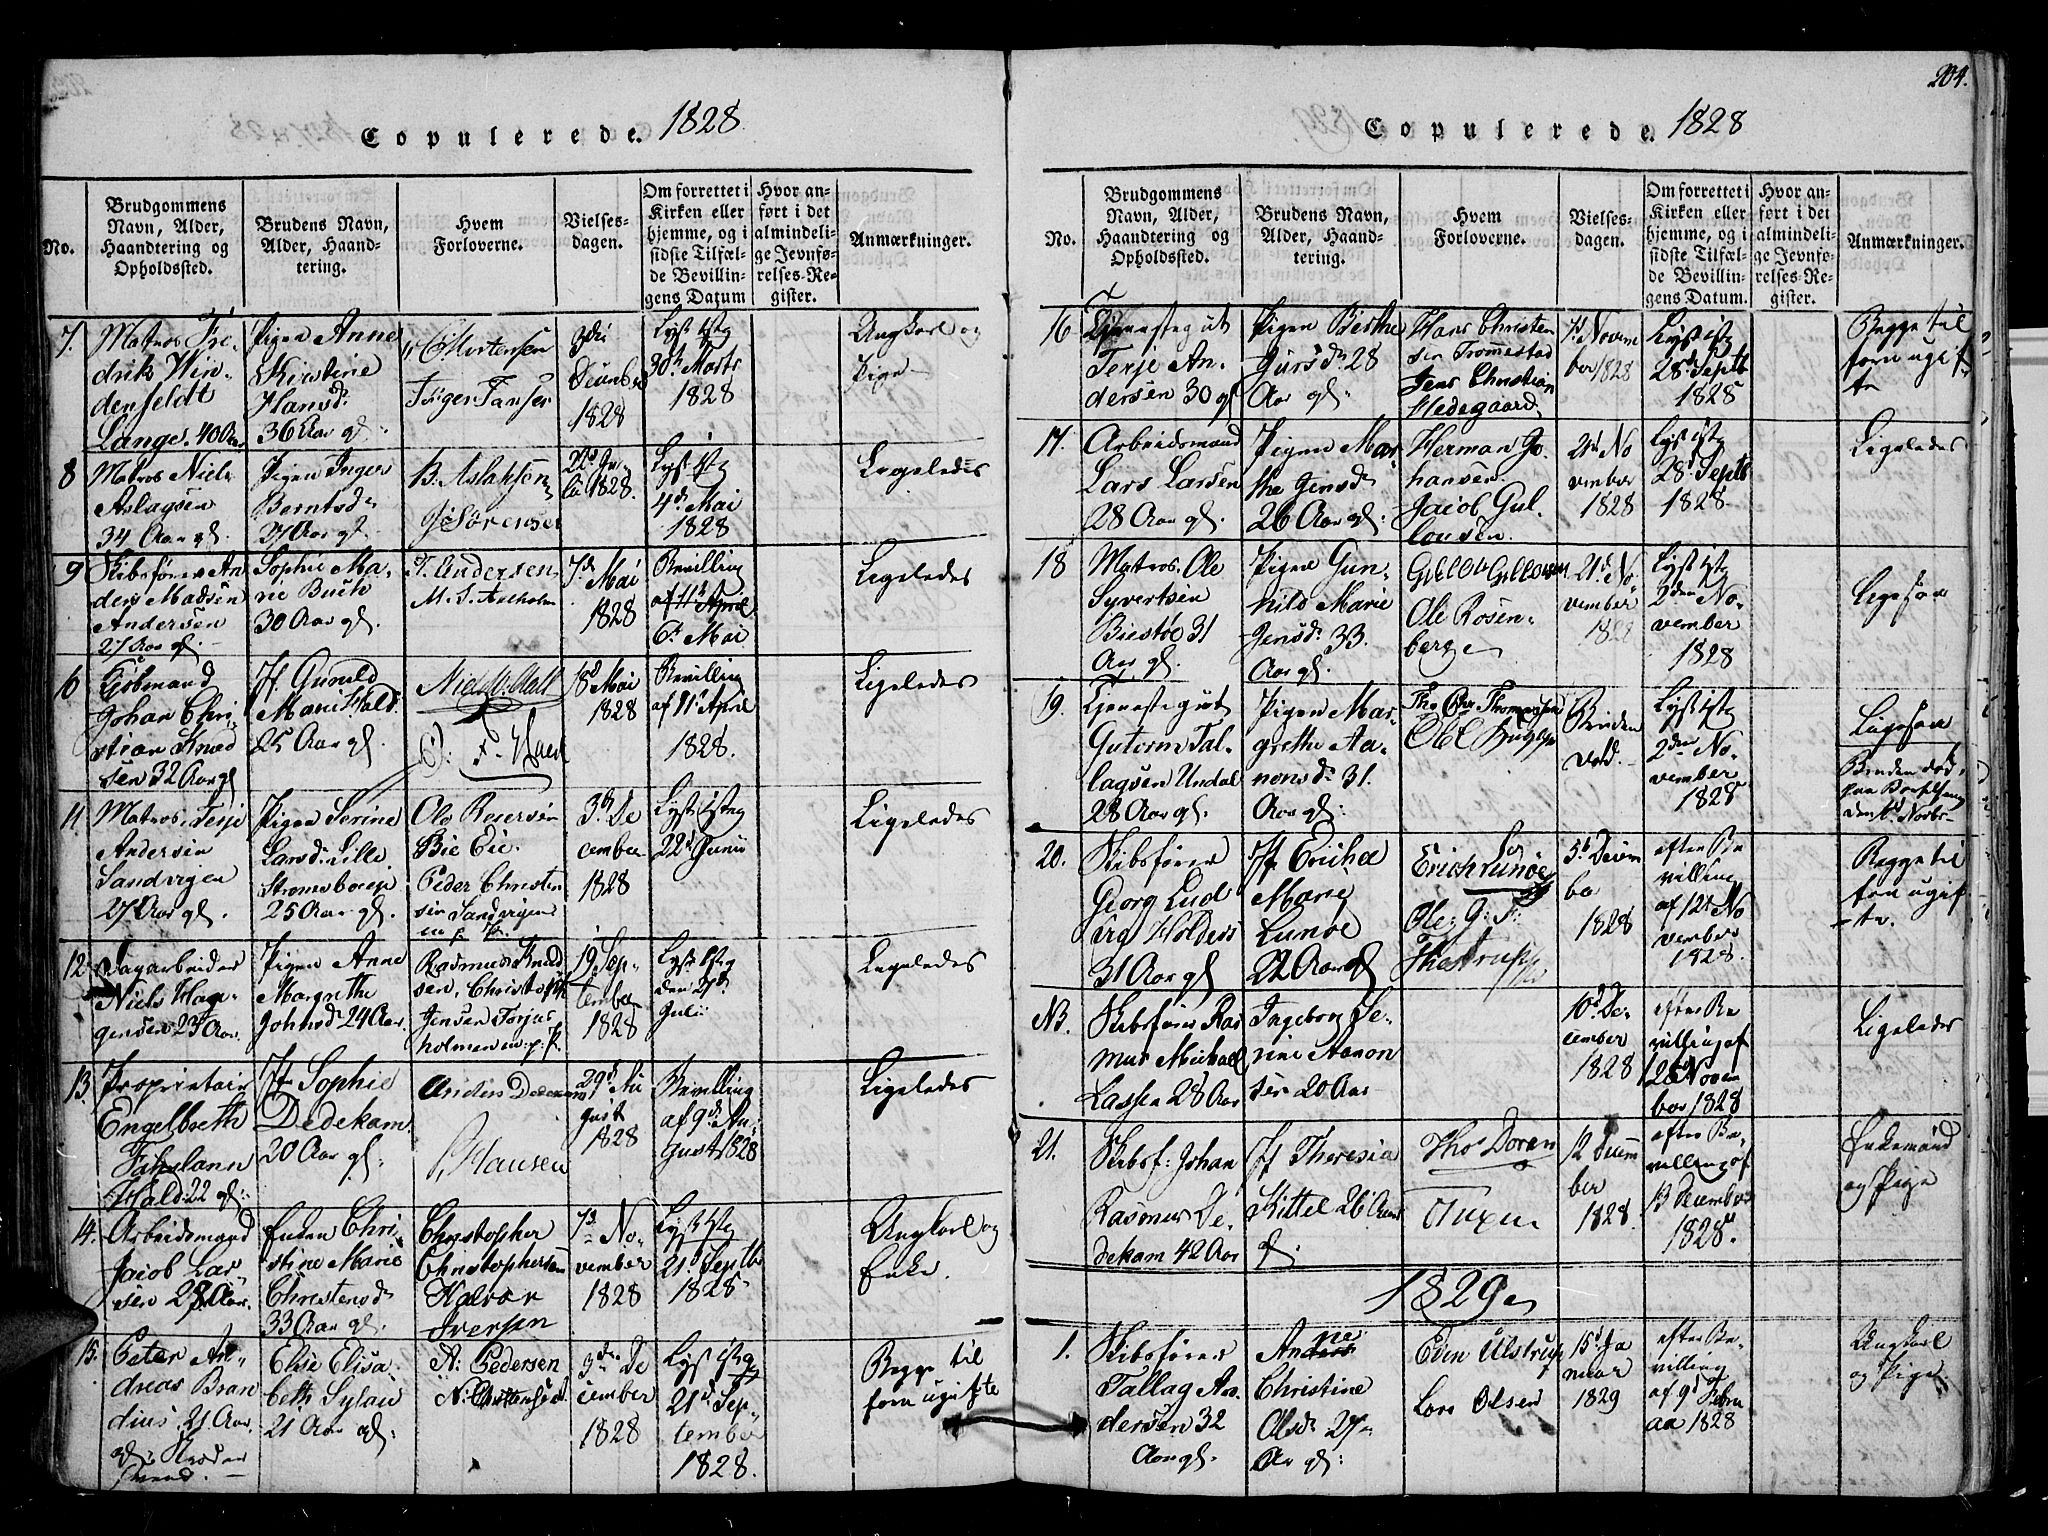 204.
Copulerede. 1828.
No.
Brudgommens
Navn, Alder,
Haandtering og
Opholdssted.
Brudens Navn,
Alder, Haand-
tering.
Hvem
Forloverne.
Vielses-
dagen.
Om forrettet i
Kirken eller
hjemme, og i
sidste Tilfæl-
de Bevillin-
gens Datum
Hvor an-
ført i det
almindeli-
ge Jevnfø-
relses-Re-
gister.
Anmærkninger.
7.
Matros Fre-
drik Win-
denfeldt
Lange. 40 Aar
Pigen Anne
Kirstine
Hansd:
36 Aar gl:
Mortensen
1828
Lyst 1ste
30te Marts
1828
Ungkarl og
Pige
8
Matros Niels
Aslagsen
34 Aar gl.
Pigen Inger
Berntsd
27 Aar gl
B. Aslaksen
Sørensen
1828.
Lyst 1ste
4de Mai
1828
Ligeledes
9
Skibsfører An-
ders Madsen
Andersen
27 Aar gl.
Sophie Ma-
rie Buch
30 Aar gl.
T. Andersen
7de Mai
1828
Bevilling
af 11te April
6te Mai
Ligeledes
10
Kjøbmand
Johan Chri-
stian Knud
sen 32 Aar gl
Jf. Gunild
Marie Hald.
25 Aar gl.
18de Mai
1828
Bevilling
af 11te April
1828.
Ligeledes
11
Matros Terje
Andersen
Sandvigen
27 Aar gl.
Pigen Serine
Larsd: Lille
25 Aar gl.
Ole
Bie Eie.
Peder Christen
sen Sandvigen
m. p. P.
3de De
cember
1828
Lyst 1ste
22de Junii
Ligeledes
12
Dagarbeider
Niels Haa-
gensen 23 Aar.
Pigen Anne
Margrethe
Johnsd 24 Aar.
Rasmus Knud
sen, Christoph
Jensen Torjus
holmen m. p. P.
19. Sep-
tember
1828
Lyst 1ste
den 27de
Julii
Ligeledes
13.
Proprietair
Engelbreth
Hald: 22 gl.
Jf Sophie
Dedekam
20 Aar gl:
Anders Dedekam
P. Hansen
29de Au
gust
1828
Bevilling
af 9de Au-
gust 1828
Ligeledes
14.
Arbeidsmand
Jacob Lar-
sen 28 Aar.
Enken Chri-
stine Marie
Christensd
33 Aar gl.
Christopher
Christophersen
Halvor
Iversen
7de No-
vember
1828
Lyst 1ste
21de Septbr
1828
Ungkarl og
Enke.
15.
Peter An-
dreas Bran
dius. 21 Aar.
Else Elisa-
beth
21 Aar gl:
A: Pedersen
N. Christensen
3de De
cember
1828
Lyst 1ste
21de Sep-
tember
1828.
Begge til
forn ugifte
Copulerede. 1828
No.
Brudgommens
Navn, Alder,
Haandtering og
Opholdssted.
Brudens Navn,
Alder, Haand-
tering.
Hvem
Forloverne.
Vielses-
dagen.
Om forrettet i
Kirken eller
hjemme, og i
sidste Tilfæl-
de Bevillin-
gens Datum.
Hvor an-
ført i det
almindeli-
ge Jevnfø-
relses-Re-
gister.
Anmærkninger.
16
Tjenestegut
Terje An-
dersen 30 gl
Pigen Berthe
28
Aar gl:
Hans Christen
sen Trommestad
Jens Christian
Hedegaard
7de Novem
ber 1828
Lyst 1ste
28de Septb
1828
Begge til
forn ugif-
te
17.
Arbeidsmand
Lars Larsen
28 Aar gl.
Pigen Mar-
the Jensd
26 Aar gl:
Herman Jo-
hansen.
Jacob Gul-
lousen.
21de No
vember
1828
Lyst 1ste
28de Septb
1828.
Ligeledes
18
Matros Ole
Syvertsen
Biestøe 31
Aar gl.
Pigen Gun-
hild Marie
Jensd: 33.
Aar gl:
Ole Rosen-
berg
21de No
vember
1828
Lyst 1ste
2den No-
vember
1828
Ligesaa
19.
Tjenestegut
Guttorm Tal-
lagsen Undal
28 Aar gl.
Pigen Mar-
grethe Aa-
nonsd: 31.
Aar gl:
Bruden
død.
Lyst 1ste
2den No-
vember
1828
Ligesaa
Bruden død
paa Barselseng
20.
Skibsfører
Georg Lud
vig Holders
31 Aar gl
Jf Ericha
Marie
Lunøe
22 Aar gl.
Erich Lunøe
Ole: G: T:
Thestrup
5te Decem
ber
1828
efter Be
villing
af 12te No
vember
1828.
Begge til
forn ugif-
te.
NB.
Skibsfører Ras
mus Michael
Lassen 28 Aar
Ingeborg Se-
rine Aanon
20 Aar
10de De-
cember
1828
efter Be
villing af
Novem
ber 1828
Ligeledes
21.
Skibsf: Johan
Rasmus De-
dekam 42 Aar
Jf Theresia
Kittel 26 Aar
gl.
Tho Doran
12 Decem
ber
1828.
efter Be-
villing af
December
1828.
Enkemand
og Pige
1829
1.
Skibsfører
Tallag An-
dersen 32
Aar gl.
Anne
Christine
Olsd: 27
Aar gl:
Eden Ulstrup
Lars Olsen
15de Ja
nuar
1829
efter Be-
villing
af 9de Febru
1828
Ungkarl
og Pige